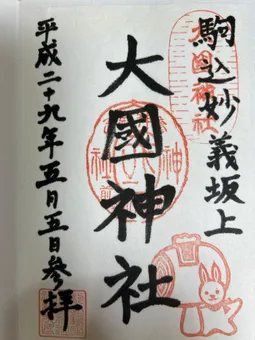 駒込妙義坂上
大國神社
大國神社
平成二十九年五月五日参拝